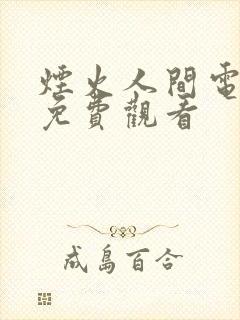 煙火人間電
免費觀看
成島百合